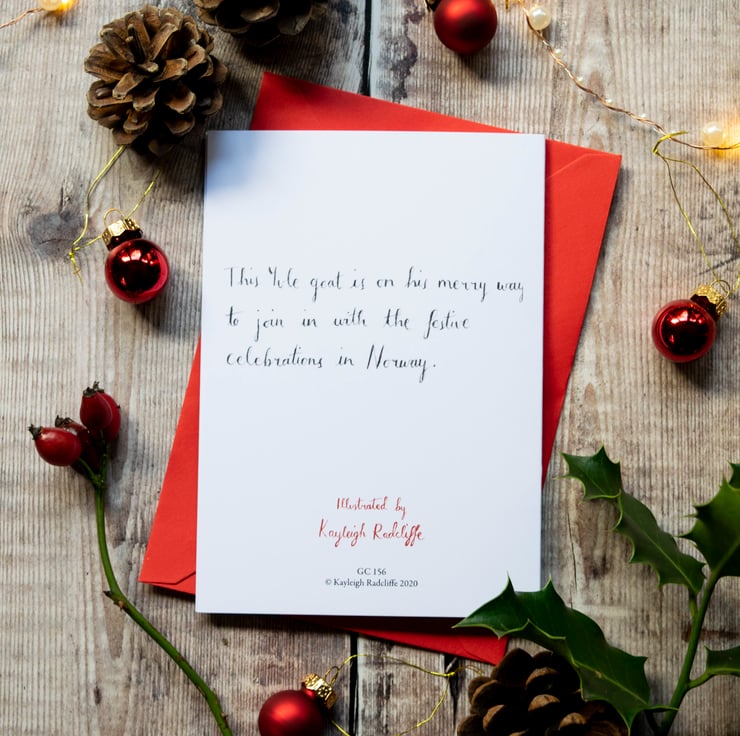 This Yule goat is on his merry way
to join in with the festive
celebrations in Norway.
Illustrated by
Kayleigh Radcliffe
GC 156
© Kayleigh Radcliffe 2020